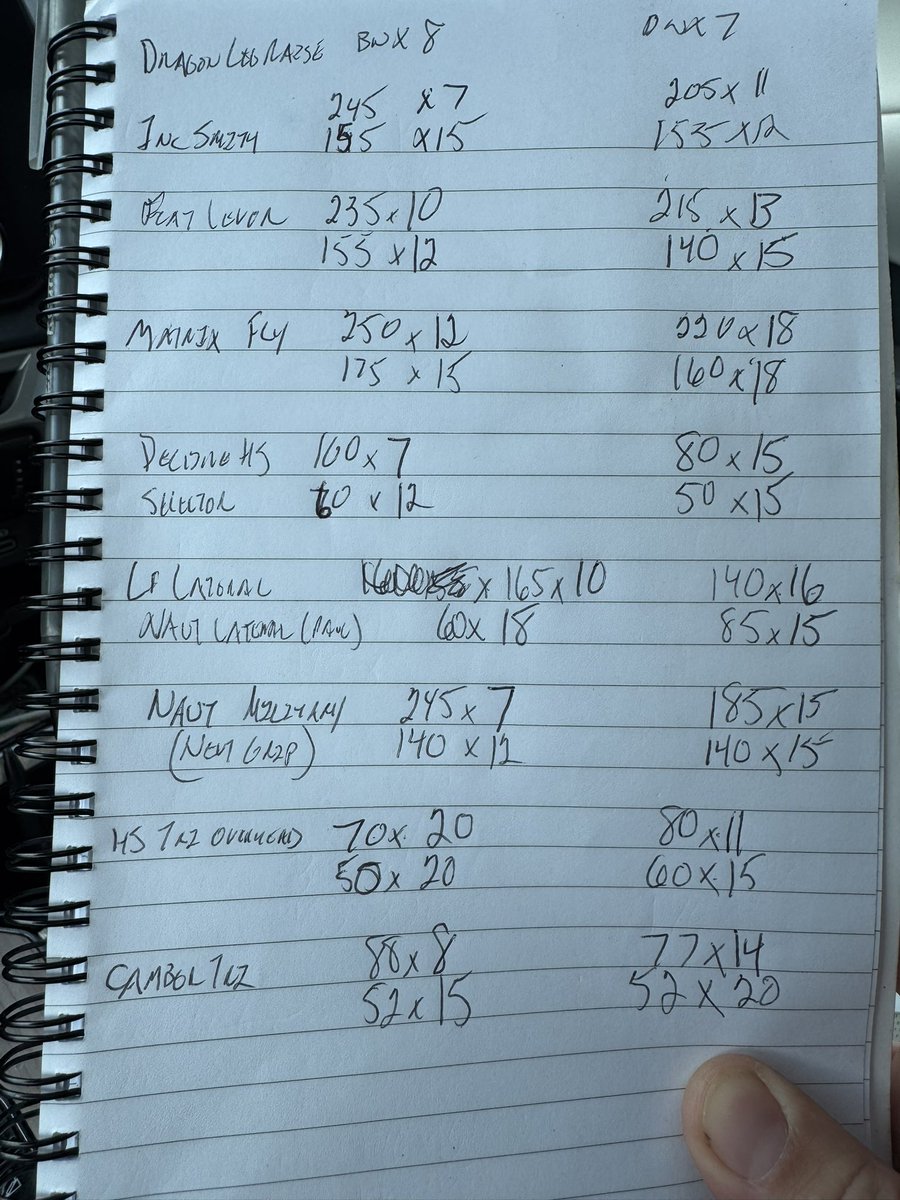 DRAGON LEG RAISE BW X 8 BW X 7
245 x 7 205 x 11
INC SMITH 155 x 15 135 x 12
FLAT LEVER 235 x 10 215 x 13
155 x 12 140 x 15
MATRIX FLY 250 x 12 220 x 18
175 x 15 160 x 18
DECLINE HS 160 x 7 80 x 15
SELECTOR 60 x 12 50 x 15
LF LATERAL x 165 x 10 140 x 16
NAUT LATERAL 60 x 18 85 x 15
NAUT MILITARY 245 x 7 185 x 15
(NEUT GRIP) 140 x 12 140 x 15
HS TRI OVERHEAD 70 x 20 80 x 11
50 x 20 60 x 15
CAMBER TRI 88 x 8 77 x 14
52 x 15 52 x 20